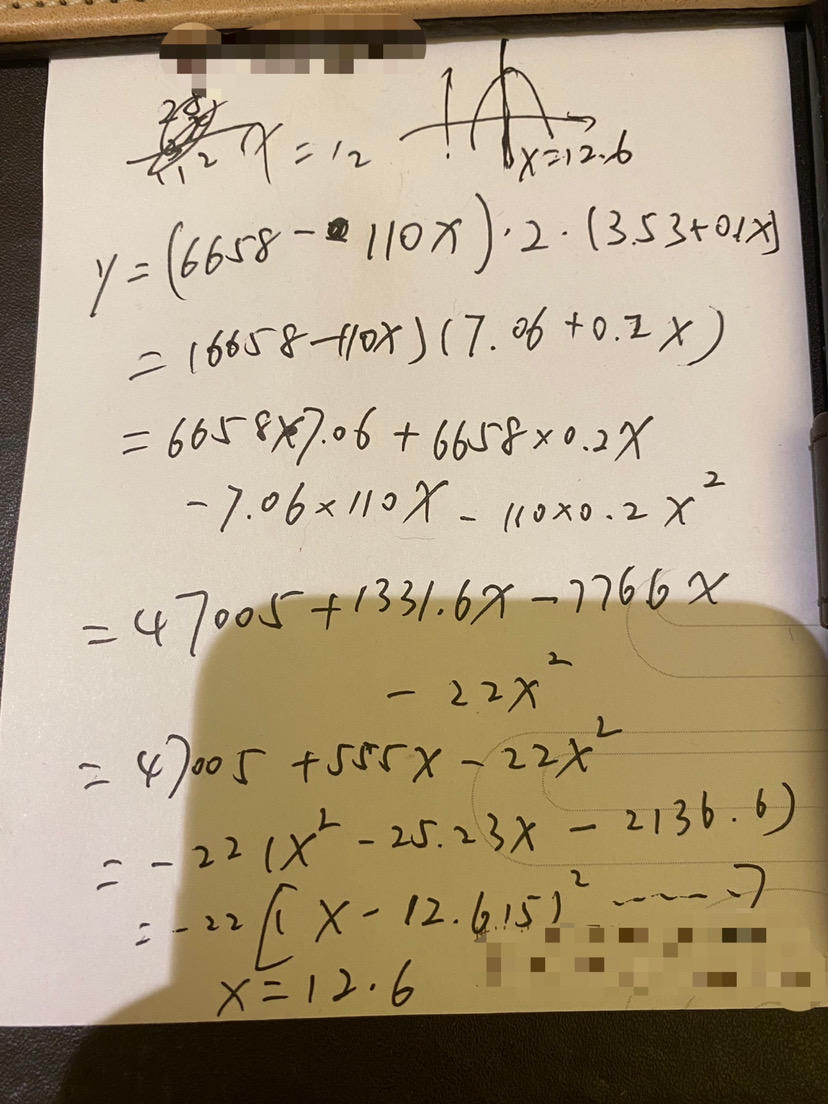 x = 12
x=12.6
y = (6658 - 110x)·2·(3.53+0.1x)
= (6658-110x)(7.06+0.2x)
= 6658×7.06 + 6658×0.2x
- 7.06×110x - 110×0.2x²
= 47005 + 1331.6x - 7766x
- 22x²
= 47005 + 555x - 22x²
= -22(x² - 25.23x - 2136.6)
= -22[(x - 12.615)² ------]
x = 12.6